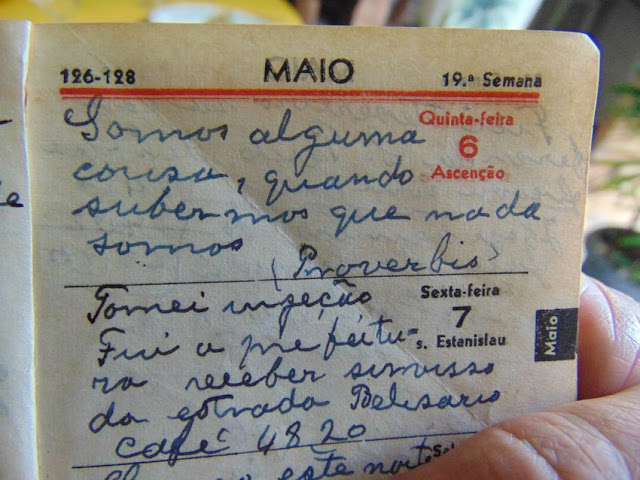 126-128 MAIO 19.ª Semana
Somos alguma Quinta-feira
6
cousa, quando Ascenção
subermos que nada
somos
(Proverbio)
Tomei injeção Sexta-feira
7
Fui a prefeitu- s. Estanislau
ra receber
da estrada Belisario
Café 48,20
este
Maio